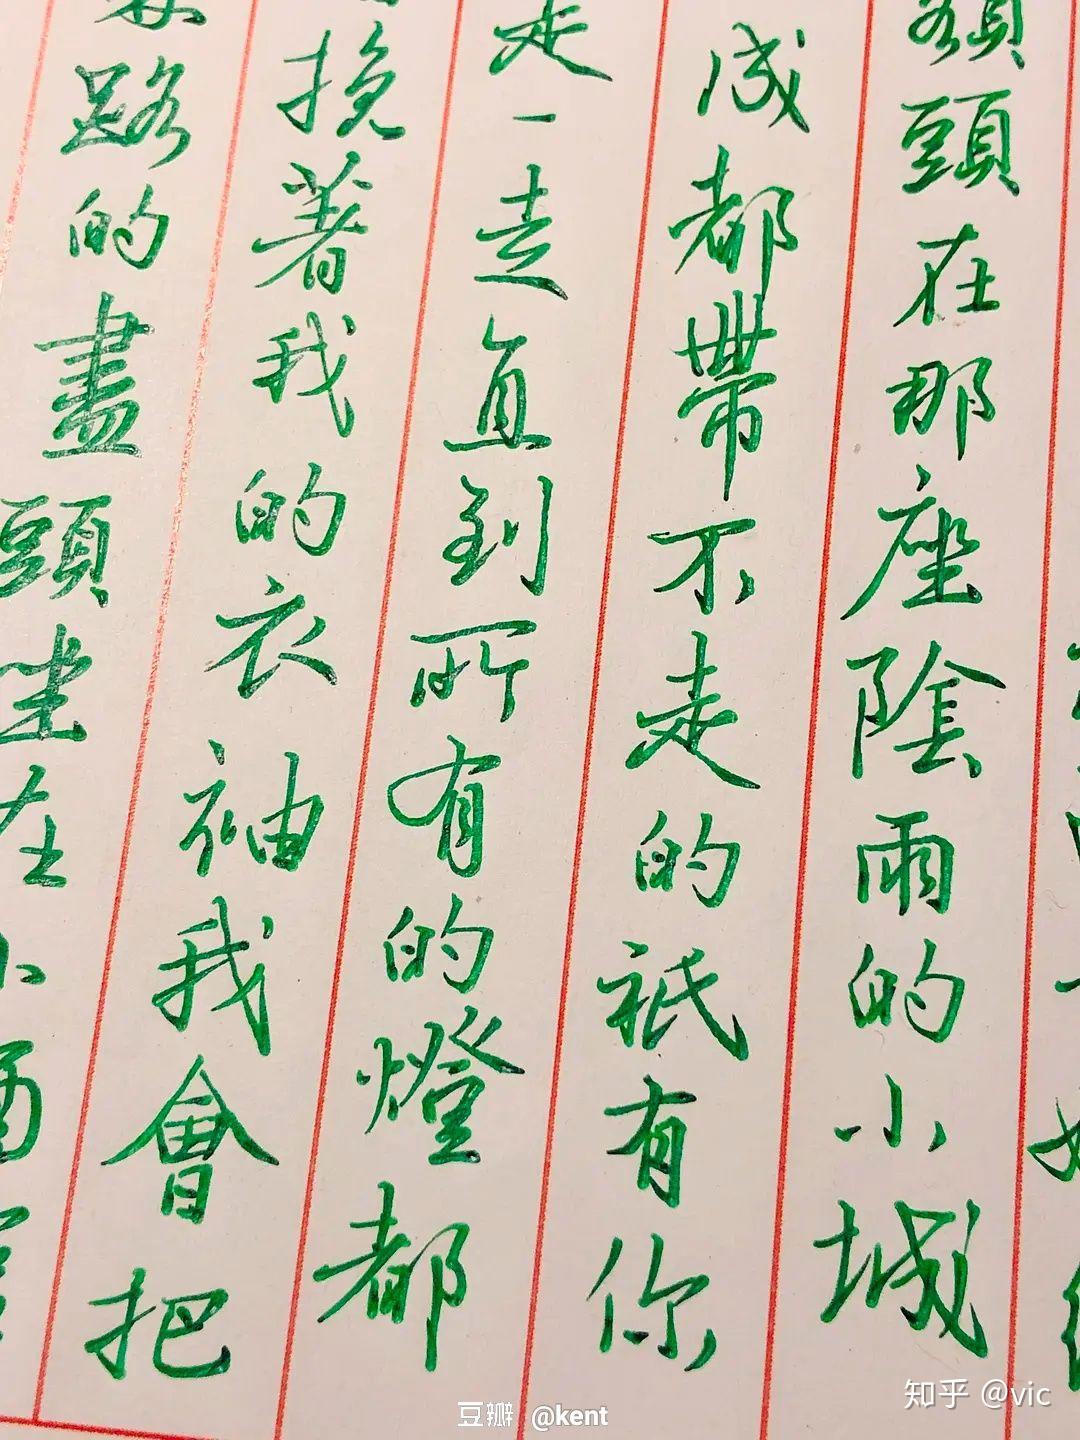 額頭在那座陰雨的小城
成都帶不走的祇有你
走一走直到所有的燈都
挽著我的衣袖我會把
路的盡頭坐在小酒
知乎 @vic
豆瓣 @kent